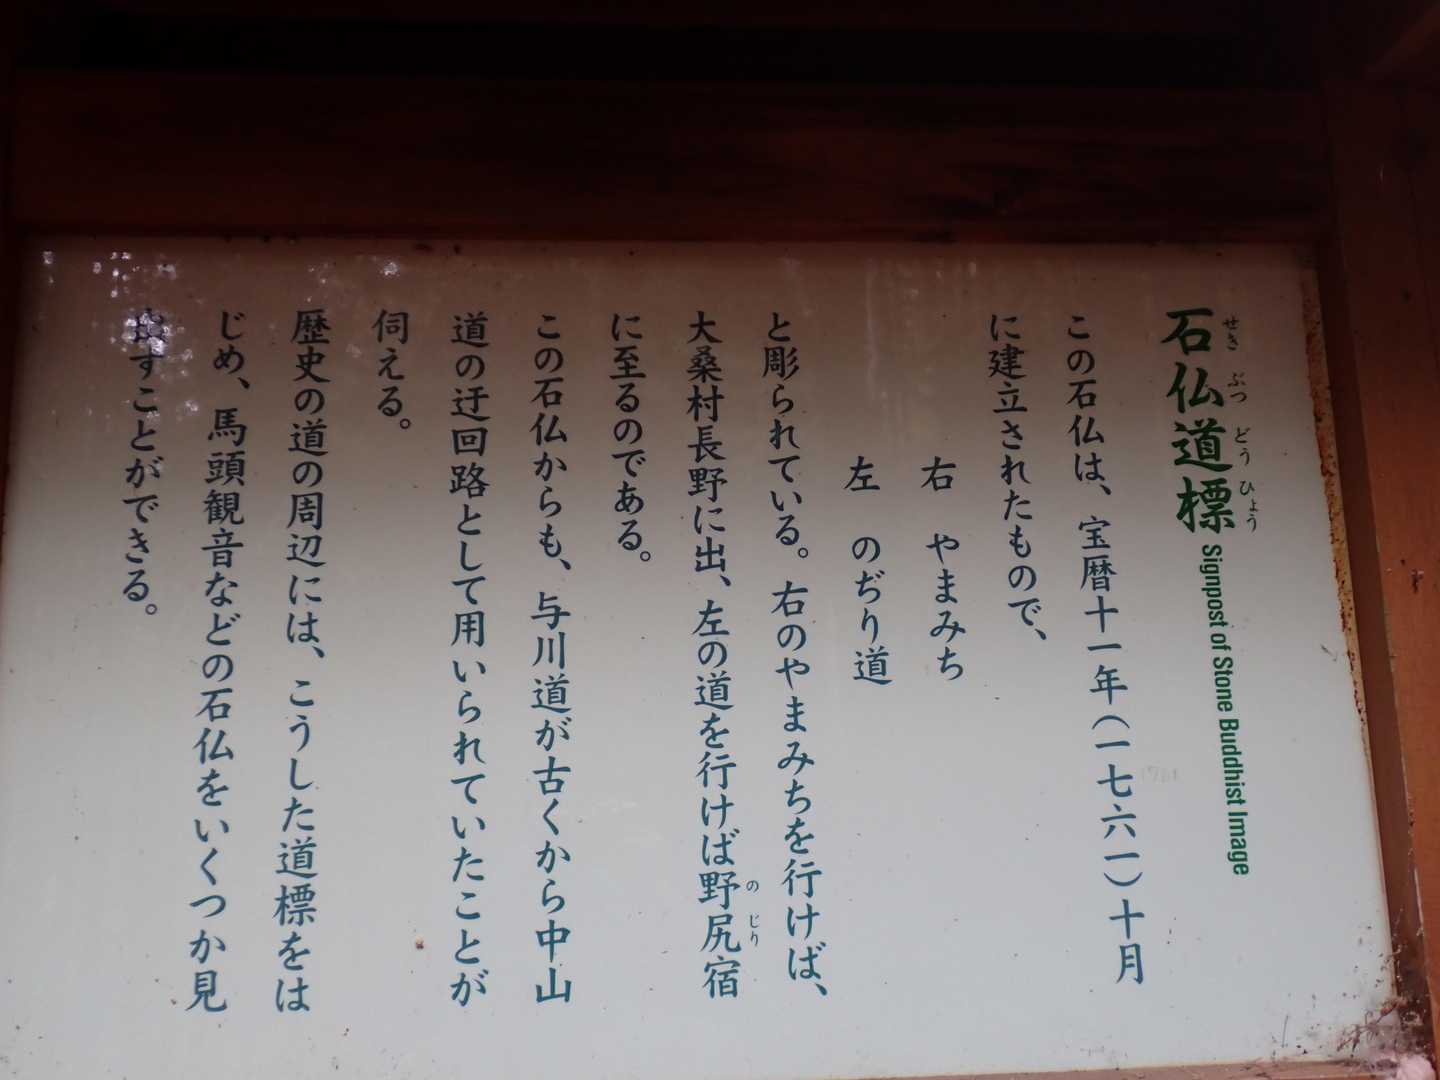 石仏道標 Signpost of Stone Buddhist Image
せきぶつどうひょう
この石仏は、宝暦十一年(一七六一)十月
に建立されたもので、
右 やまみち
左 のぢり道
と彫られている。右のやまみちを行けば、
大桑村長野に出、左の道を行けば野尻宿
のじり
に至るのである。
この石仏からも、与川道が古くから中山
道の迂回路として用いられていたことが
伺える。
歴史の道の周辺には、こうした道標をは
じめ、馬頭観音などの石仏をいくつか見
出すことができる。